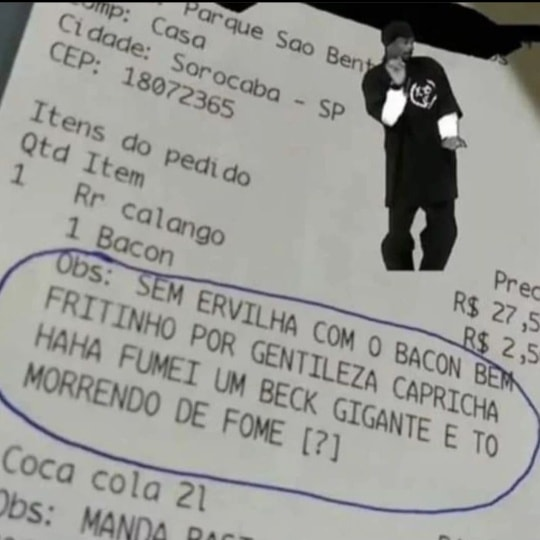 omp: Casa
Parque Sao Bent
Cidade: Sorocaba - SP
CEP: 18072365
Itens do pedido
Qtd Item
1 Rr calango
1 Bacon
Prec
R$ 27,5
R$ 2,5
Obs: SEM ERVILHA COM O BACON BEM
FRITINHO POR GENTILEZA CAPRICHA
HAHA FUMEI UM BECK GIGANTE E TO
MORRENDO DE FOME [?]
Coca cola 2l
Obs: MANDA